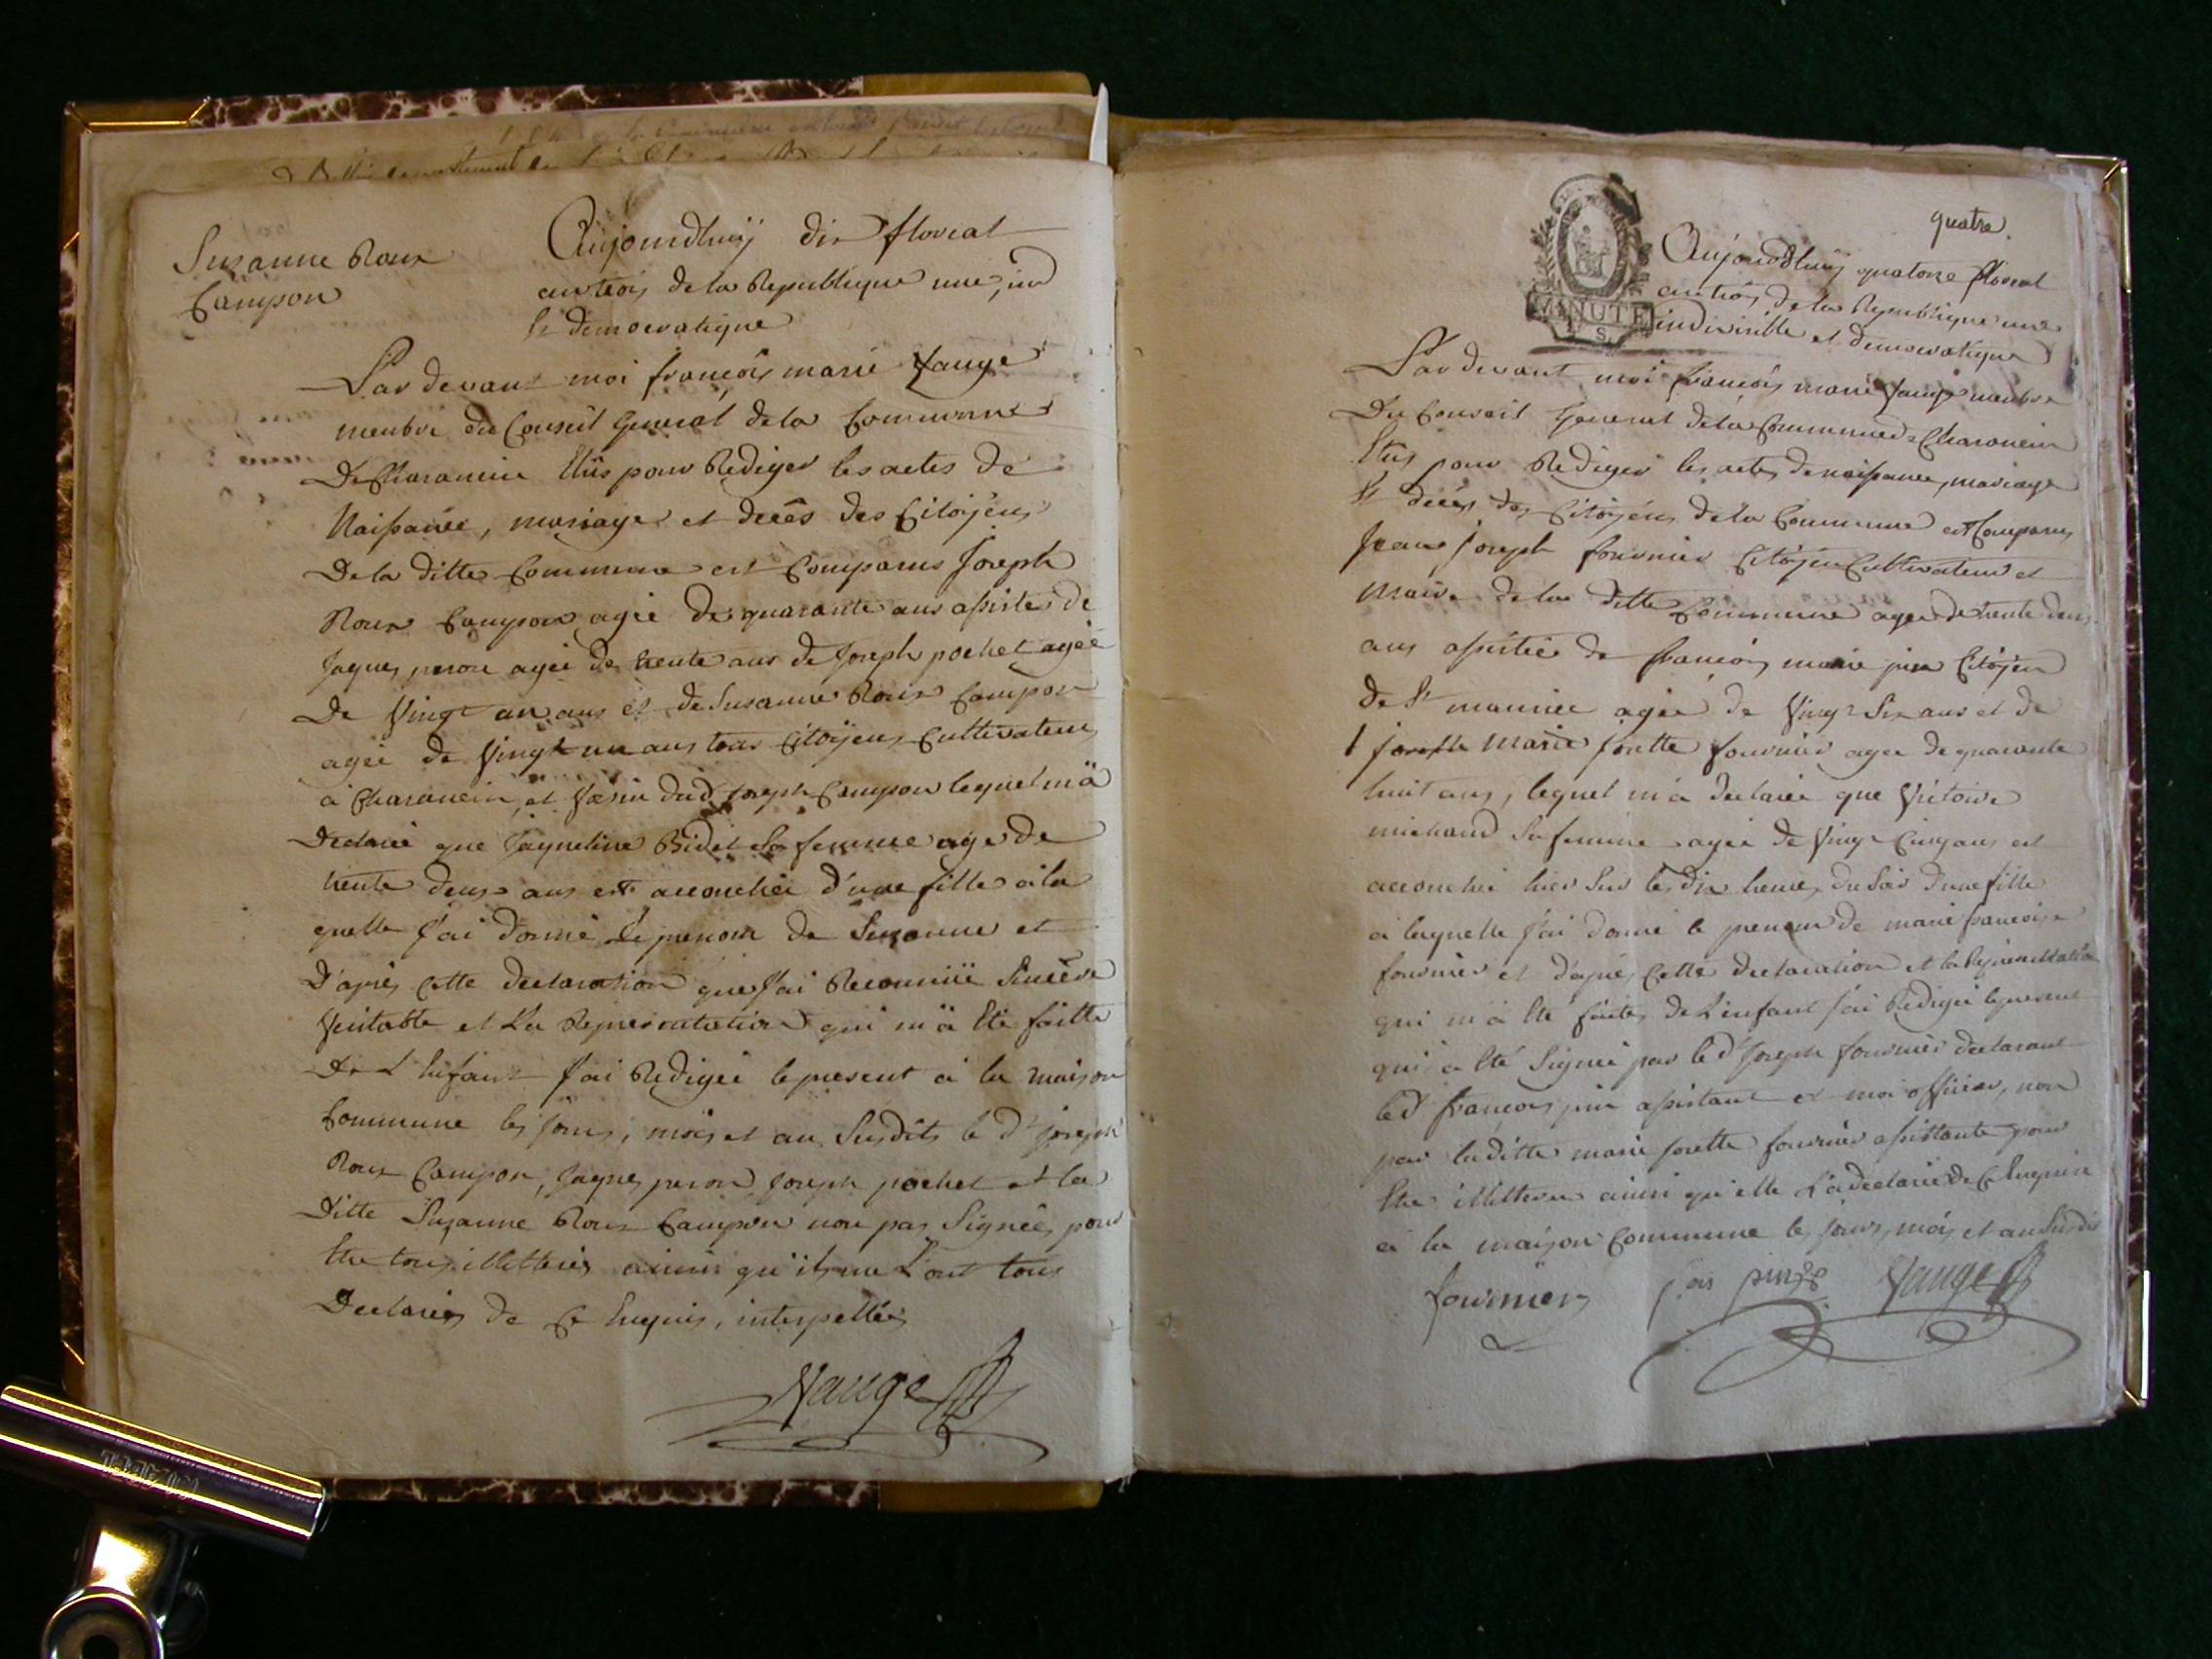 Susanne Roux
Campon
Aujourdhuÿ dix floreal
an trois de la Republique une, ind
et democratique
Par devant moi françois marie Vauge
membre du Conseil general de la Commune
De Charancin Elus pour Rediger les actes de
Naissance, mariages et decès des Citoÿens
De la ditte Commune est Comparus Joseph
Roux Campon agée de quarante ans assistes de
Jaques peron agée de trente ans de Joseph pochet agée
De Vingt un ans et de Susanne Roux Campon
agée de Vingt un ans tous Citoÿens Cultivateurs
à Charancin, et dud Joseph Campon lequel m'a
Declaré que Jaqueline Bidet sa femme age de
trente deux ans est accouchée d'une fille a la
quelle J'ai donné Le prenom de Suzanne et
D'après cette declaration que J'ai Reconnüe Sincère
Veritable et La Representation qui m'à Eté faitte
De L'Enfant J'ai Redigée le present à la maison
Commune les jours, mois et an Susdits le dt joseph
Roux Campon, Jaques peron, Joseph pochet et la
Ditte Suzanne Roux Campon non pas Signée, pour
Etre tous illettrés ainsi qu'ils me L'ont tous
Declarés de Ce Enquis, interpellés
Vauge
quatre
MINUTE
Aujourdhuÿ quatorze floreal
an trois de la Republique une
indivisible et democratique
Par devant moi françois marie Vauge membre
Du Conseil general de la Commune de Charancin
Elus pour Rediger les actes de naissance, mariage
Et decès des Citoÿens de la Commune est Comparus
Jean Joseph fournier Citoÿen Cultivateur et
Maire de la ditte Commune agée de trente deux
ans assistée de françois marie pin Citoÿen
de St maurice agée de Vingt Six ans et de
Marie Josette fournier agee de quarante
huit ans, lequel m'a declaré que Victoire
michaud Sa femme agée de Vingt Cinq ans est
accouchée hier Sur les dix heures du Soir d'une fille
a laquelle J'ai donné le prenom de marie francoise
fournier et d'après Cette declaration et la Representation
qui m'a Eté faites de L'enfant J'ai Redigée le present
qui a Eté Signée par le dt Joseph fournier declarant
le dt françois pin assistant et moi officier, non
par la ditte marie Josette fournier assistante pour
Etre illettree ainsi qu'elle L'a declarée de Ce Enquise
a la maison Commune les jours, mois et an Susdit
fournier fois pin Vauge